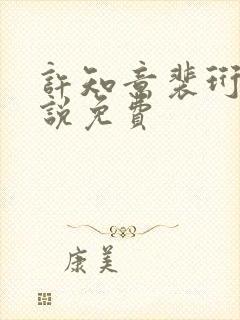 許知意裴珩
說免費
康美